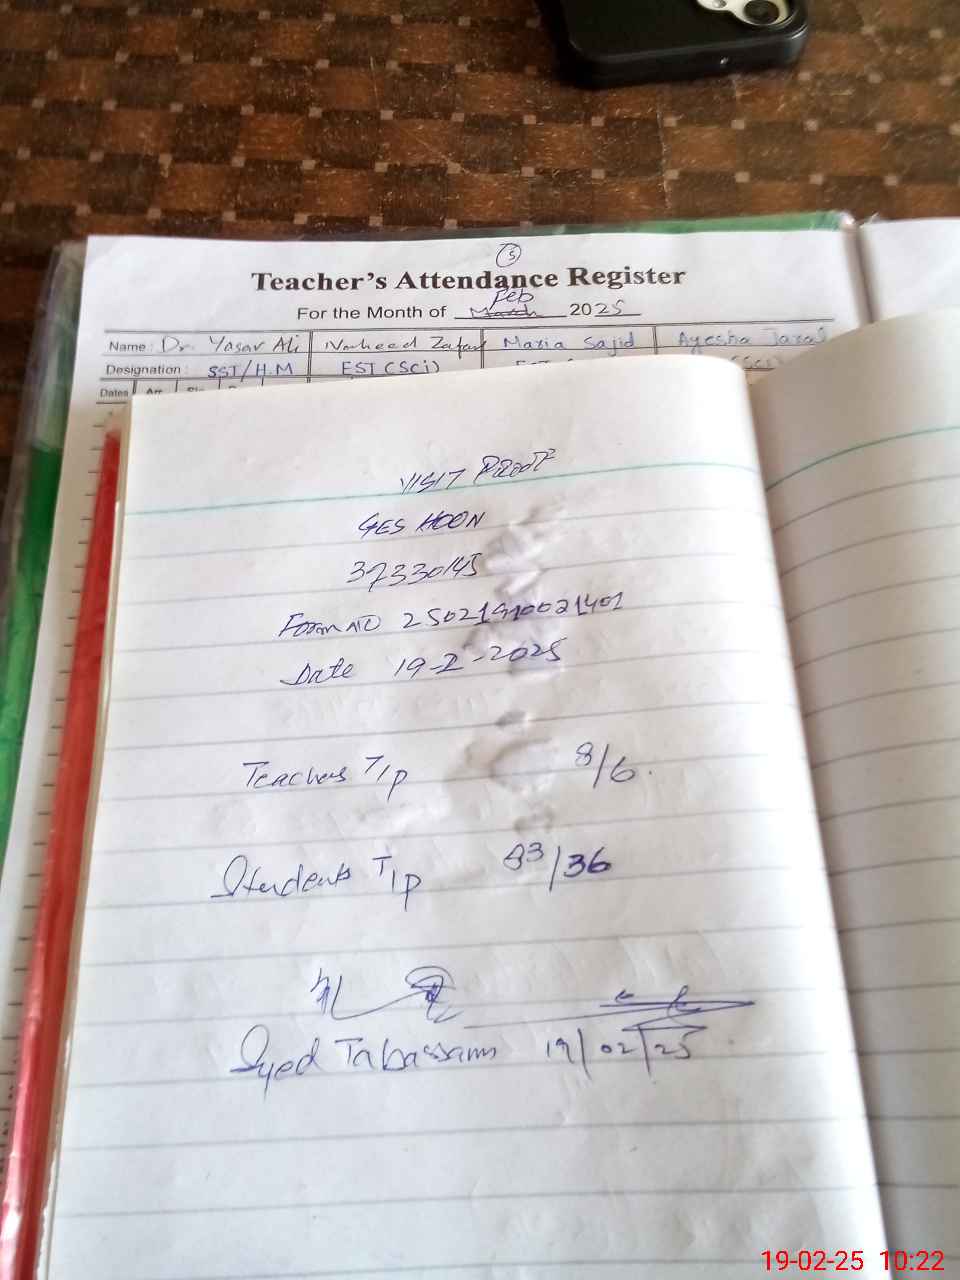 5
Teacher's Attendance Register
Feb
For the Month of March 2025
Name: Dr. Yasar Ali Naveed Zafar Maria Sajid Ayesha
Designation: SST/H.M EST (Sci)
Dates Arr
VISIT PROOF
GES HOON
37330145
Form NO 25021910021401
Date 19-2-2025
Teachers T/P 8/6
Students T/P 83/36
Syed Tabassam 19/02/25
19-02-25 10:22